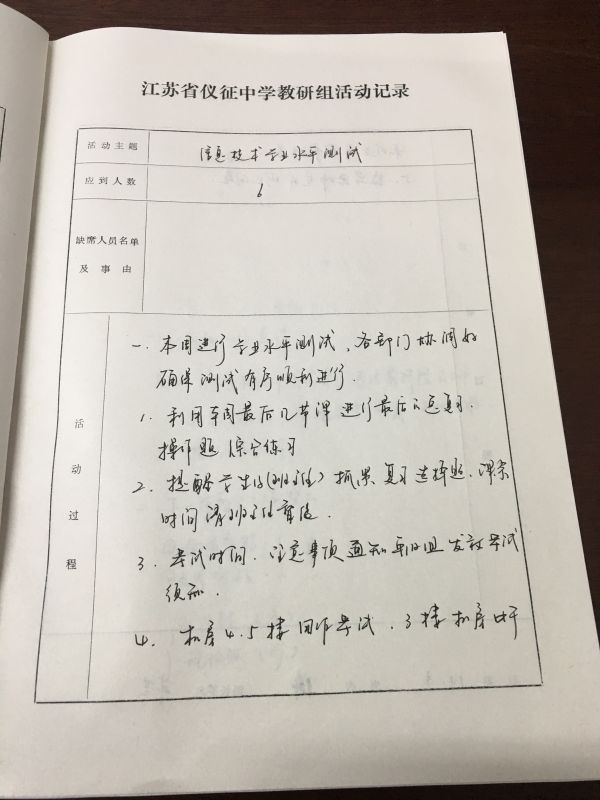 江苏省仪征中学教研组活动记录
活动主题 信息技术学业水平测试
应到人数 6
缺席人员名单
及事由
活动过程
一、本周进行学业水平测试,各部门协调好
确保测试有序顺利进行.
1. 利用本周最后几节课进行最后的总复习.
操作题 综合练习
2. 提醒学生(班主任)抓紧复习选择题.课余
时间请班主任
3. 考试时间.注意事项通知年级组 发放考试
须知.
4. 机房4.5楼用作考试.3楼机房